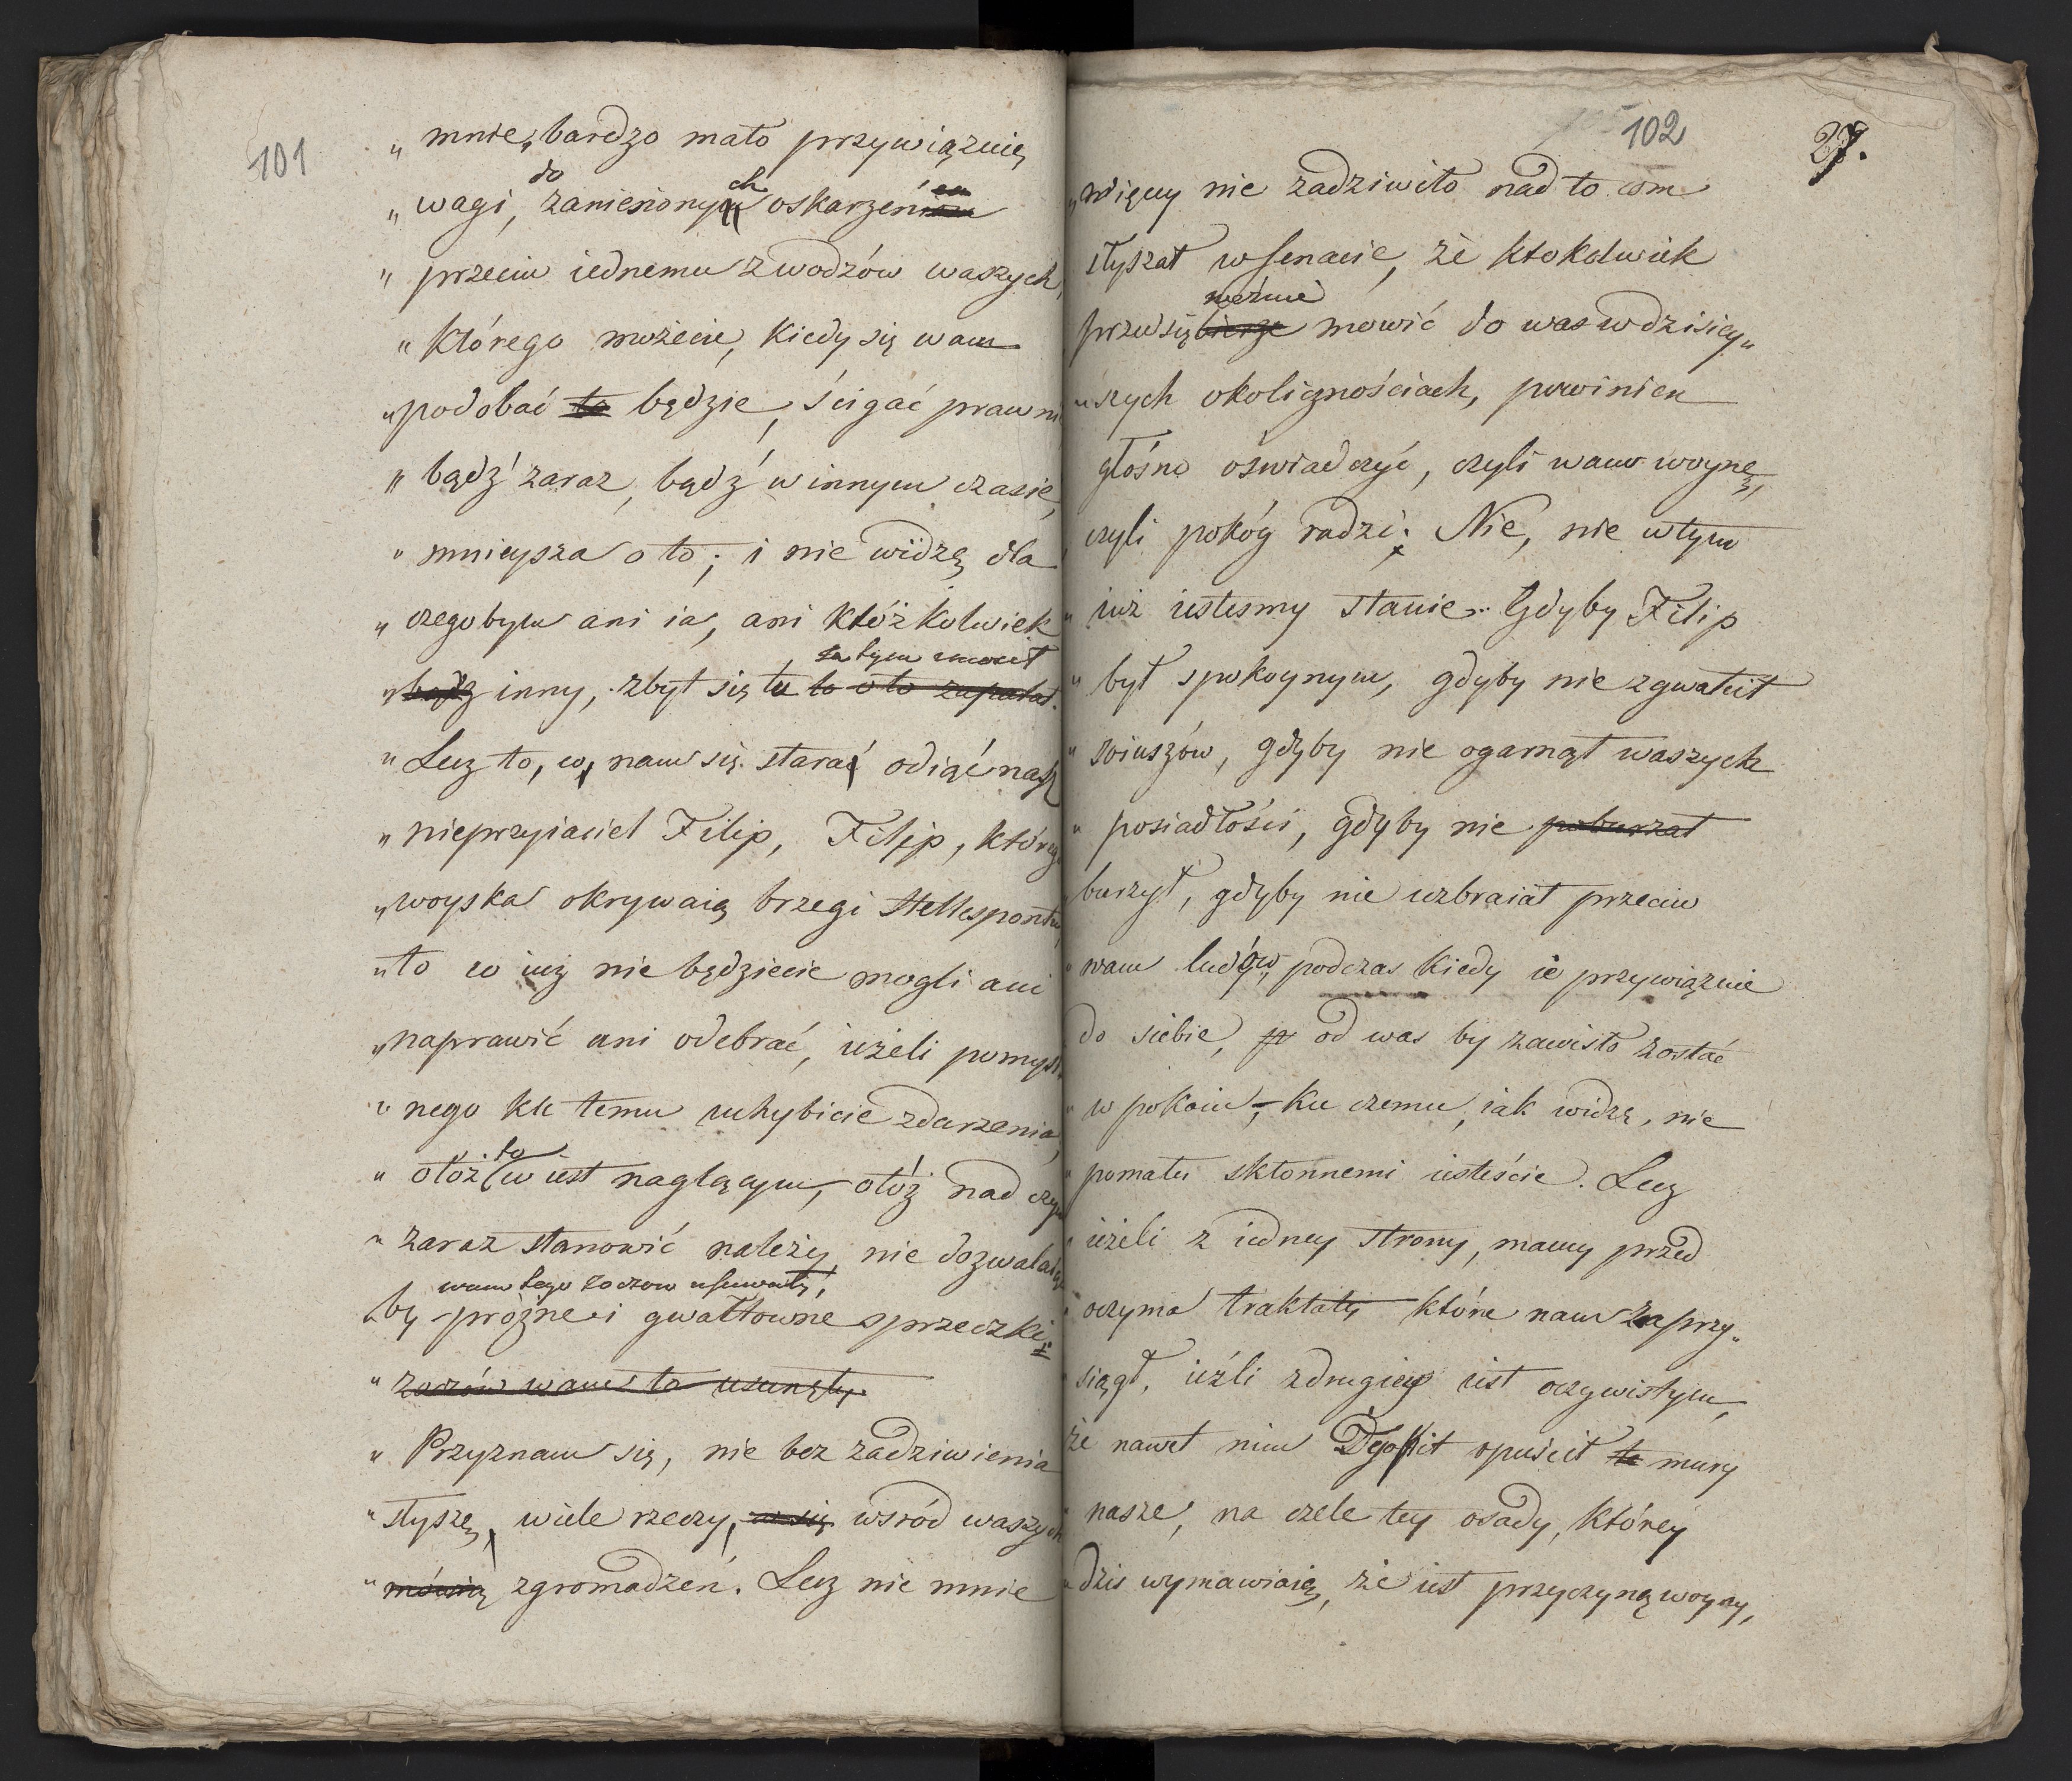 101
„ mnie, bardzo mało przywiązuię
do ch
„ wagi, zaniesionych oskarzeń
„ przeciw iednemu z wodzów waszych,
„ którego możecie, kiedy się wam
„ podobać to będzie, ścigać prawnie
„ bądź zaraz, bądź w innym czasie,
„ mnieysza o to; i nie widzę dla
„ czegobym ani ia, ani któżkolwiek
za tym unosił
„ bądź inny, zbyt się tu to o to zapalał.
„ Lecz to, co nam się stara odiąć nasz
„ nieprzyiaciel Filip, Filip, którego
„ woyska okrywaią brzegi Hellespontu,
„ to co iuż nie będziecie mogli ani
„ naprawić ani odebrać, ieżeli pomyśl„
„ nego ku temu uchybicie zdarzenia,
to
„ otóż co iest naglącym, otóż nad czym
„ zaraz stanowić należy, nie dozwalaiąc
wam tego z oczow usuwały,
by prózne i gwałtowne sprzeczki
„ z oczów wam to usunęły.
„ Przyznam się, nie bez zadziwienia
„ słyszę, wiele rzeczy, wśród waszych
„ mówią zgromadzeń. Lecz nic mnie
102
27.
„ więcey nie zadziwiło nad to com
słyszał w senacie, że ktokolwiek
weźmie
przedsiębierze mowić do was w dzisiey„
„ szych okolicznościach, powinien
głośno oświadczyć, czyli wam woynę,
czyli pokóy radzi; Nie, nie w tym
„ iuż iestesmy stanie. Gdyby Filip
„ był spokoynym, gdyby nie zgwałcił
„ soiuszów, gdyby nie ogarnął waszych
„ posiadłości, gdyby nie poburzał
burzył, gdyby nie uzbraiał przeciw
„ wam ludów, podczas kiedy ie przywiązuie
do siebie, od was by zawisło zostać
„ w pokoiu, ku czemu, iak widzę, nie
„ pomału skłonnemi iesteście. Lecz
„ ieżeli z iedney strony, mamy przed
„ oczyma traktaty które nam zaprzy„
siągł, ieźli z drugiey iest oczywistym,
że nawet nim Dyopit opuścił te mury
„ nasze, na czele tey osady, którey
„ dzis wymawiaią, że iest przyczyną woyny,